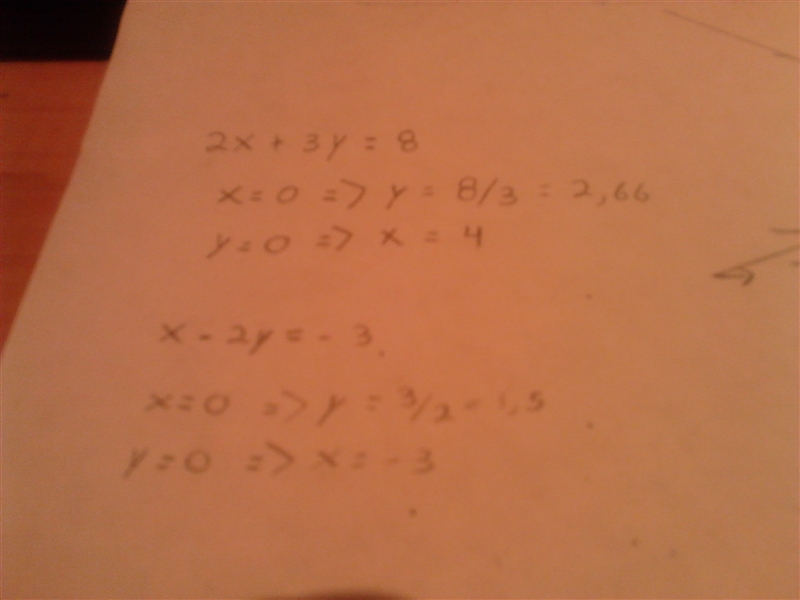 2x + 3y = 8
x = 0 => y = 8/3 = 2,66
y = 0 => x = 4
x - 2y = - 3
x = 0 => y = 3/2 = 1,5
y = 0 => x = - 3